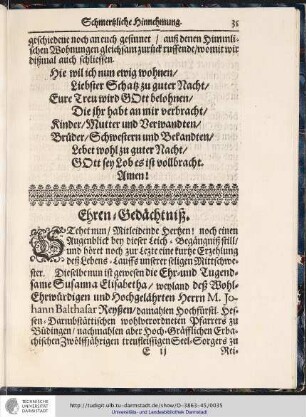 Schmertzliche Hinnehmung. 35
geschiedene noch an euch gesinnet / auß denen Himmli-
schen Wohnungen gleichsam zurück ruffende / womit wir
dißmal auch schliessen.
Hie wil ich nun ewig wohnen /
Liebster Schatz zu guter Nacht /
Eure Treu wird GOtt belohnen /
Die ihr habt an mir verbracht /
Kinder / Mutter und Verwandten /
Brüder / Schwestern und Bekandten /
Lebet wohl zu guter Nacht /
GOtt sey Lob es ist vollbracht.
Amen!
Ehren-Gedächtniß.
Stehet nun / Mitleidende Hertzen! noch einen
Augenblick bey dieser Leich-Begängniß still /
und hört noch zur Letzte eine kurtze Erzehlung
deß Lebens-Lauffs unserer seligen Mittschwe-
ster. Dieselbe nun ist gewesen die Ehr- und Tugend-
same Susanna Elisabetha / weyland deß Wohl-
Ehrwürdigen und Hochgelährten Herrn M. Jo-
hann Balthasar Reyßen / damahlen Hochfürstl. Hes-
sen-Darmbstättischen wohlverordneten Pfarrers zu
Büdingen / nachmahlen aber Hoch-Gräfflichen Erba-
chischen Zwölffjährigen treufleissigen Seel-Sorgers zu
E ij Rei-
TECHNISCHE
UNIVERSITÄT
DARMSTADT
http://tudigit.ulb.tu-darmstadt.de/show/D-3863-45/0035
Universitäts- und Landesbibliothek Darmstadt